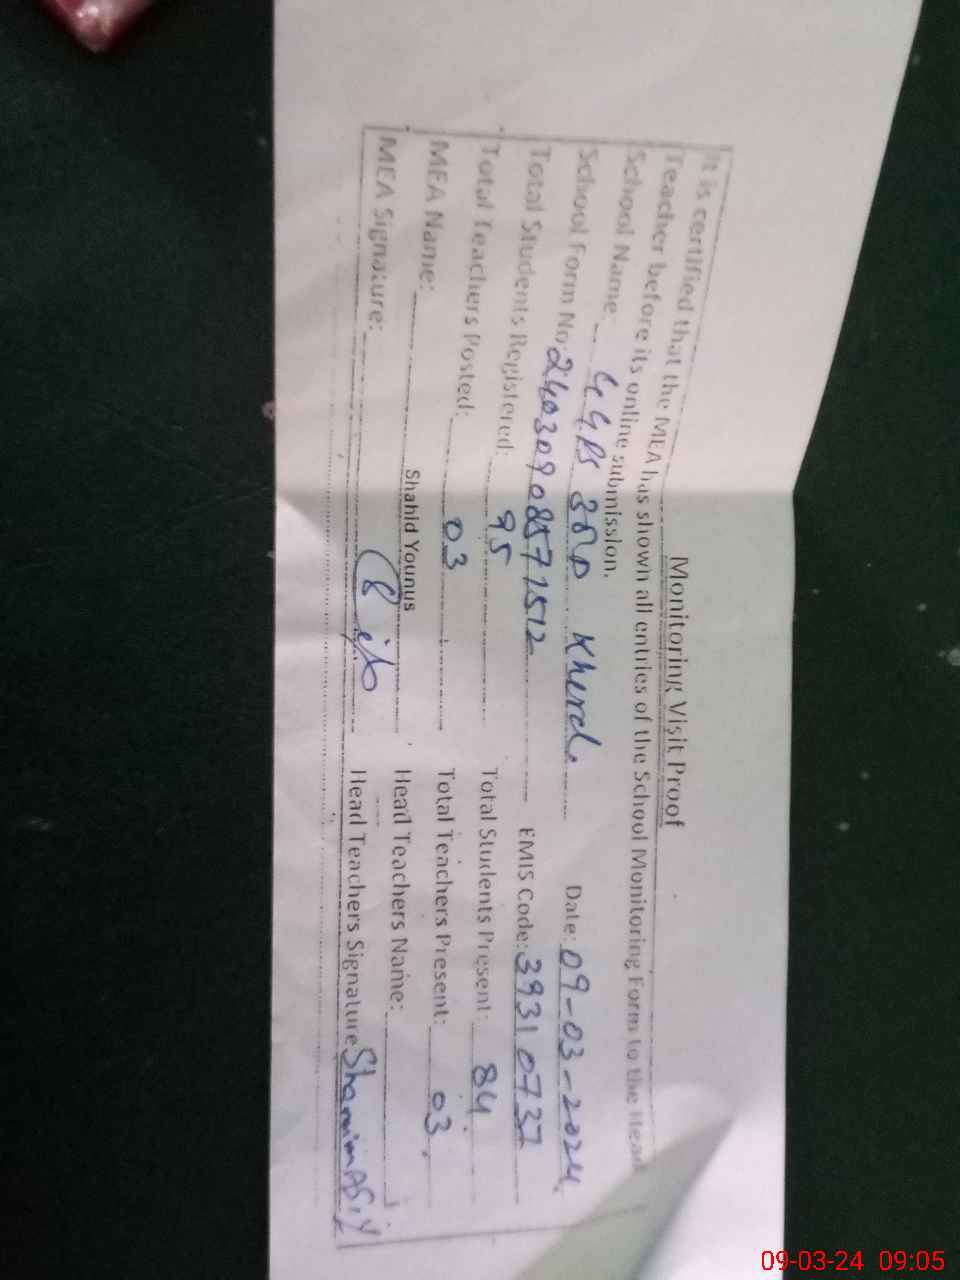 Monitoring Visit Proof
It is certified that the MEA has shown all entries of the School Monitoring Form to the Head
Teacher before its online submission.
School Name: G.G.P.S Kherd. Date: 09-03-2024.
School Form No: 240309085771512 EMIS Code: 39310737
Total Students Registered: 95 Total Students Present: 84
Total Teachers Posted: 03 Total Teachers Present: 03
MEA Name: Shahid Younus Head Teachers Name:
MEA Signature: Head Teachers Signature Shamim
09-03-24 09:05